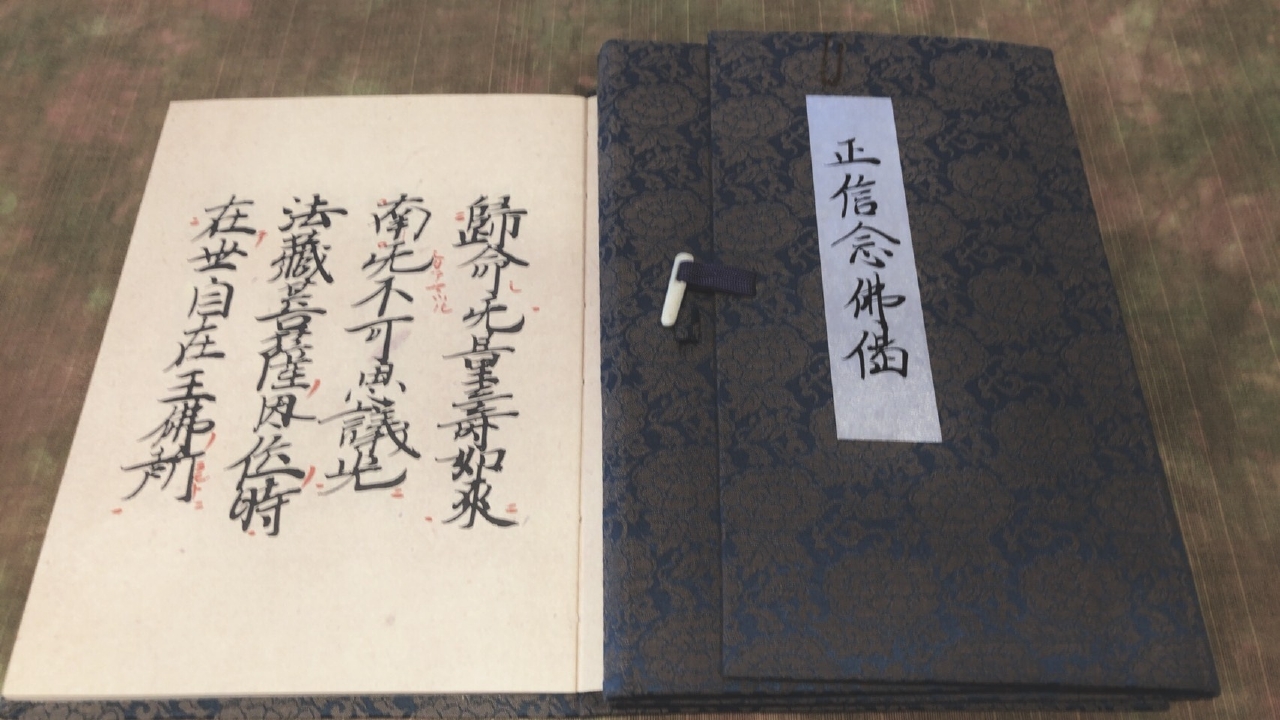 正信念佛偈
歸命无量壽如來
南无不可思議光
法藏菩薩因位時
在世自在王佛所